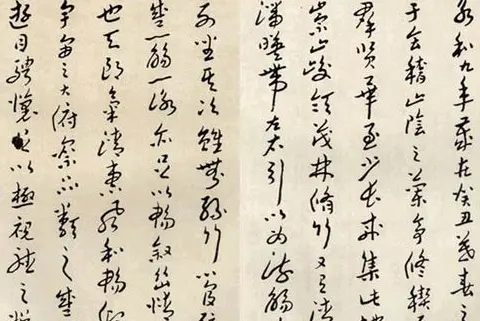 永和九年歲在癸丑暮春之
于会稽山陰之蘭亭修禊
群賢畢至少長咸集此地
崇山峻領茂林修竹又有清
湍暎帶左右引以為流觴
列坐其次雖無絲竹管
盛一觴一詠亦足以暢叙幽情
也天朗氣清惠風和暢仰
宇宙之大俯察品類之盛
遊目騁懷足以極視聽之娱